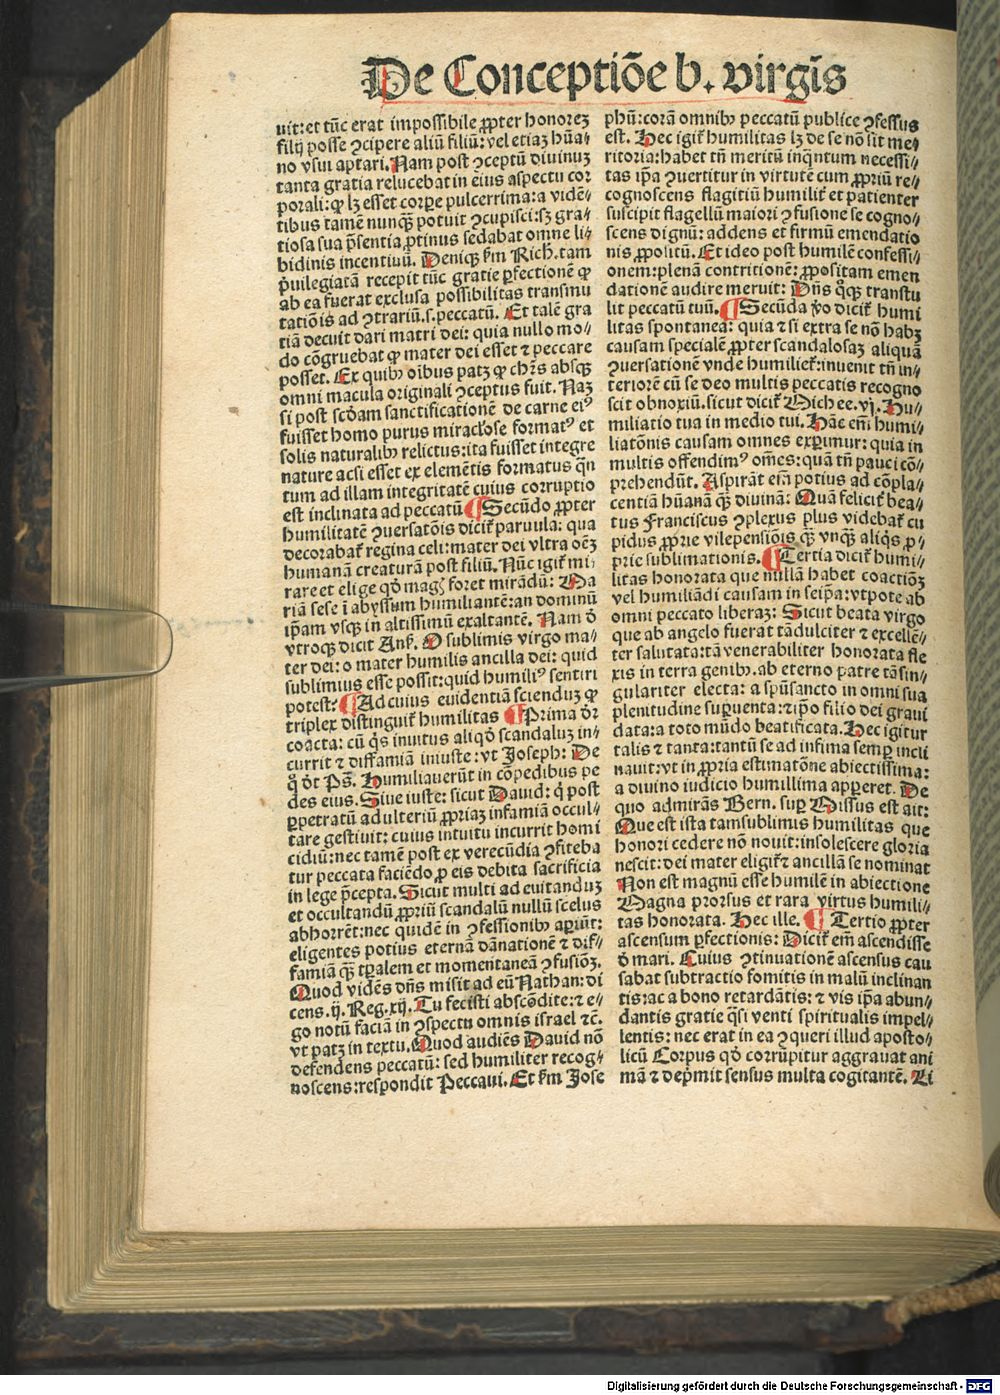 De Conceptiōe b. virgīs
uit: et tūc erat impossibile ꝓpter honorez
filij posse ꝯcipere aliū filiū: vel etiaz hūa⸗
no vsui aptari. Nam post ꝯceptū diuinuz
tanta gratia relucebat in eius aspectu cor
porali: ꝙ lz esset corpe pulcerrima: a vidē⸗
tibus tamē nunqꝫ potuit ꝯcupisci: sz gra⸗
tiosa sua p̄sentia ꝓtinus sedabat omne li⸗
bidinis incentiuū. Deniqꝫ ẜm Rich. tam
p̄uilegiatā recepit tūc gratie ꝑfectionē ꝙ
ab ea fuerat exclusa possibilitas transmu
tatiōis ad ꝯtrariū.s.peccatū. Et talē gra
tiā decuit dari matri dei: quia nullo mo⸗
do cōgruebat ꝙ mater dei esset ⁊ peccare
posset. Ex quibꝰ oibus patz ꝙ chr̄s absqꝫ
omni macula originali ꝯceptus fuit. Naz
si post scḋam sanctificationē de carne eiꝰ
fuisset homo purus miracl̓ose formatꝰ et
solis naturalibꝰ relictus: ita fuisset integre
nature acsi esset ex elemētis formatus qn̄
tum ad illam integritatē cuius corruptio
est inclinata ad peccatū ¶ Secūdo ꝓpter
humilitatē ꝯuersatōis dicit̄ paruula: qua
decorabat̄ regina celi: mater dei vltra oēz
humanā creaturā post filiū. Nūc igit̄ mi
rare et elige qḋ mag̣ foret mirādū: Ma
riā sese ī abyssum humiliantē: an dominū
ip̄am vsqꝫ in altissimū exaltantē. Nam ḋ
vtroqꝫ dicit Anß. O sublimis virgo ma⸗
ter dei: o mater humilis ancilla dei: quid
sublimius esse possit: quid humiliꝰ sentiri
potest? ¶ Ad cuius euidentiā scienduz ꝙ
triplex distinguit̄ humilitas ¶ Prima d̄r
coacta: cū q̇s inuitus aliqḋ scandaluz in⸗
currit ⁊ diffamiā iniuste: vt Joseph: De
q̊ ḋt Ps̄. Humiliauerūt in cōpedibus pe
des eius. Siue iuste: sicut Dauid: q̇ post
ꝑpetratū adulteriū ꝓpriaz infamiā occul⸗
tare gestiuit: cuius intuitu incurrit homi
cidiū: nec tamē post ex verecūdia ꝯfiteba
tur peccata faciēdo ꝓ eis debita sacrificia
in lege p̄cepta. Sicut multi ad euitanduz
et occultandū ꝓpriū scandalū nullū scelus
abhorrēt: nec quidē in ꝯfessionibꝰ aꝑiūt:
eligentes potius eternā dānationē ⁊ dif⸗
famiā qꝫ tꝑalem et momentaneā ꝯfusiōz.
Quod vidēs dn̄s misit ad eū Nathan: di
cens.ij. Reg.xij. Tu fecisti abscōdite: ⁊ e⸗
go notū faciā in ꝯspectu omnis israel ⁊c̄.
vt patz in textu. Quod audiēs Dauid nō
defendens peccatū: sed humiliter recog⸗
noscens: respondit Peccaui. Et ẜm Jose
phū: corā omnibꝰ peccatū publice ꝯfessus
est. Hec igit̄ humilitas lz de se nō sit me⸗
ritoria: habet tn̄ meritū inq̄ntum necessi⸗
tas ip̄a ꝯuertitur in virtutē cum ꝓpriū re⸗
cognoscens flagitiū humilit̄ et patienter
suscipit flagellū maiori ꝯfusione se cogno⸗
scens dignū: addens et firmū emendatio
nis ꝓpositū. Et ideo post humilē confessi⸗
onem: plenā contritionē: ꝓpositam emen
dationē audire meruit: Dn̄s q̊qꝫ transtu
lit peccatū tuū. ¶ Secūda ṽo dicit̄ humi
litas spontanea: quia ⁊ si extra se nō habz
causam specialē ꝓpter scandalosaz aliquā
ꝯuersationē vnde humiliet̄: inuenit tn̄ in⸗
teriorē cū se deo multis peccatis recogno
scit obnoxiū. sicut dicit̄ Michee.vj. Hu⸗
miliatio tua in medio tui. Hāc em̄ humi⸗
liatōnis causam omnes exꝑimur: quia in
multis offendimꝰ om̄es: quā tn̄ pauci cō⸗
prehendūt. Aspirāt em̄ potius ad cōpla⸗
centiā hūanā qꝫ diuinā: Quā felicit̄ bea⸗
tus Franciscus ꝯplexus plus videbat̄ cu
pidus ꝓprie vilepensiōis qꝫ vnqꝫ aliq̇s ꝓ⸗
prie sublimationis. ¶ Tertia dicit̄ humi⸗
litas honorata que nullā habet coactiōz
vel humiliādi causam in seipa: vtpote ab
omni peccato liberaz: Sicut beata virgo
que ab angelo fuerat tādulciter ⁊ excellē⸗
ter salutata: tā venerabiliter honorata fle
xis in terra genibꝰ. ab eterno patre tāsin⸗
gulariter electa: a sp̄usancto in omni sua
plenitudine suꝑuenta: ⁊ ip̄o filio dei graui
data: a toto mūdo beatificata. Hec igitur
talis ⁊ tanta: tantū se ad infima semꝑ incli
nauit: vt in ꝓpria estimatōne abiectissima:
a diuino iudicio humillima apꝑeret. De
quo admirās Bern. suꝑ Missus est ait:
Que est ista tamsublimis humilitas que
honori cedere nō nouit: insolescere gloria
nescit: dei mater eligit̄ ⁊ ancillā se nominat
Non est magnū esse humilē in abiectione
Magna prorsus et rara virtus humili⸗
tas honorata. Hec ille. ¶ Tertio ꝓpter
ascensum ꝑfectionis: Dicit̄ em̄ ascendisse
ḋ mari. Cuius ꝯtinuationē ascensus cau
sabat subtractio fomitis in malū inclinan
tis: ac a bono retardātis: ⁊ vis ip̄a abun⸗
dantis gratie q̄si venti spiritualis impel⸗
lentis: nec erat in ea ꝯqueri illud aposto⸗
licū Corpus qḋ corrūpitur aggrauat ani
mā ⁊ dep̄mit sensus multa cogitantē. Li
Digitalisierung gefördert durch die Deutsche Forschungsgemeinschaft - DFG